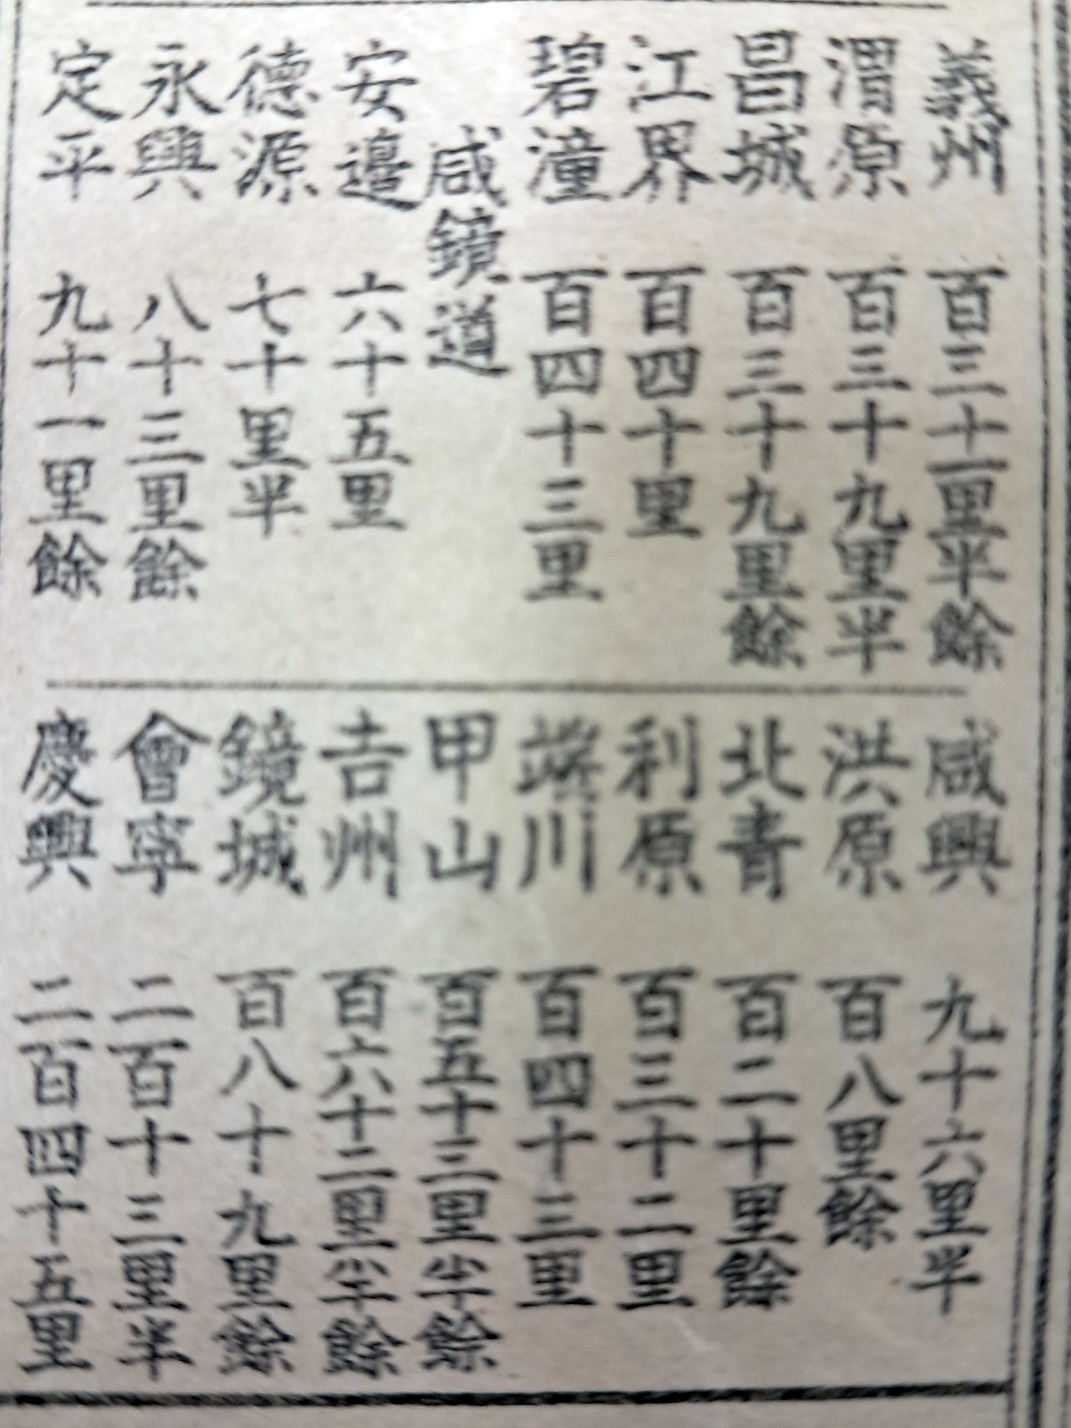 義州 百三十一里半餘
渭原 百三十九里半
昌城 百三十九里餘
江界 百四十里
碧潼 百四十三里
咸鏡道
安邊 六十五里
德源 七十里半
永興 八十三里餘
定平 九十一里餘
咸興 九十六里半
洪原 百八里餘
北青 百二十里餘
利原 百三十二里
端川 百四十三里
甲山 百五十三里半餘
吉州 百六十二里半餘
鏡城 百八十九里餘
會寧 二百十三里半
慶興 二百四十五里